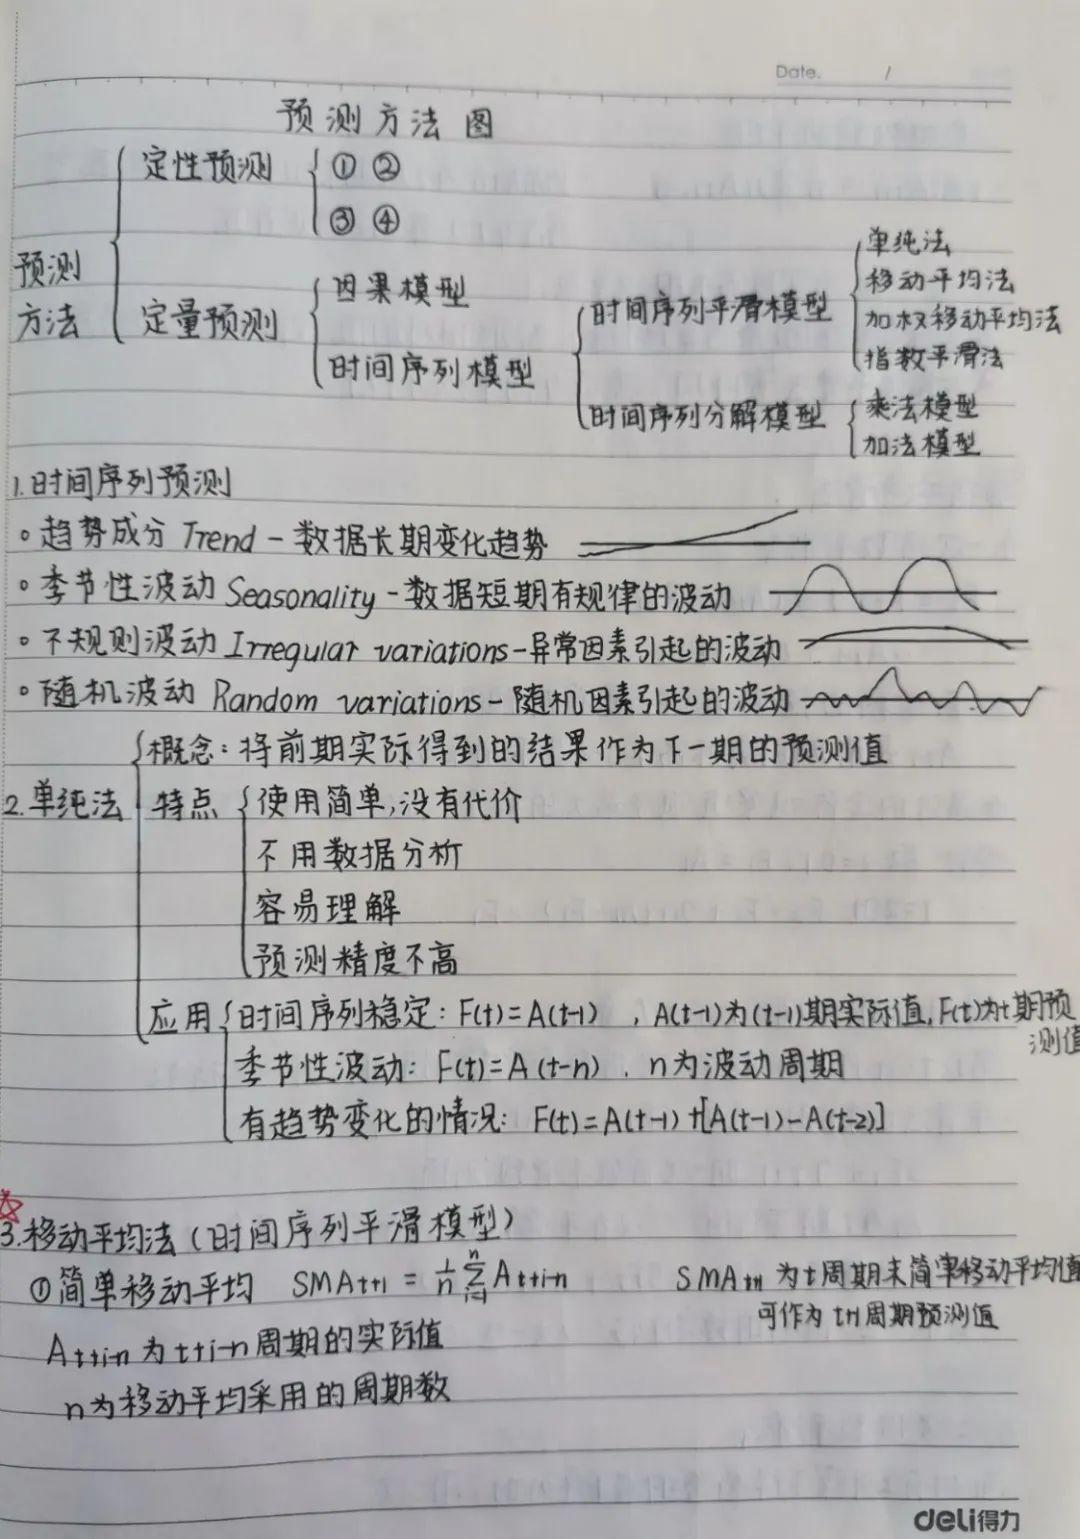 Date. /
预测方法图
预测方法
定性预测 ① ②
③ ④
定量预测
因果模型
时间序列模型
时间序列平滑模型
单纯法
移动平均法
加权移动平均法
指数平滑法
时间序列分解模型
乘法模型
加法模型
1.时间序列预测
。趋势成分 Trend - 数据长期变化趋势
。季节性波动 Seasonality - 数据短期有规律的波动
。不规则波动 Irregular variations - 异常因素引起的波动
。随机波动 Random variations - 随机因素引起的波动
2.单纯法
概念：将前期实际得到的结果作为下一期的预测值
特点
使用简单,没有代价
不用数据分析
容易理解
预测精度不高
应用
时间序列稳定：F(t)=A(t-1) , A(t-1)为(t-1)期实际值,F(t)为t期预
测值
季节性波动：F(t)=A(t-n) , n为波动周期
有趋势变化的情况：F(t)=A(t-1)+[A(t-1)-A(t-2)]
☆
3.移动平均法(时间序列平滑模型)
①简单移动平均 SMAt+1 = 1/n ∑(i=1→n) At+i-n SMAt+1 为t周期末简单移动平均值
可作为t+1周期预测值
At+i-n为t+i-n周期的实际值
n为移动平均采用的周期数
deli得力